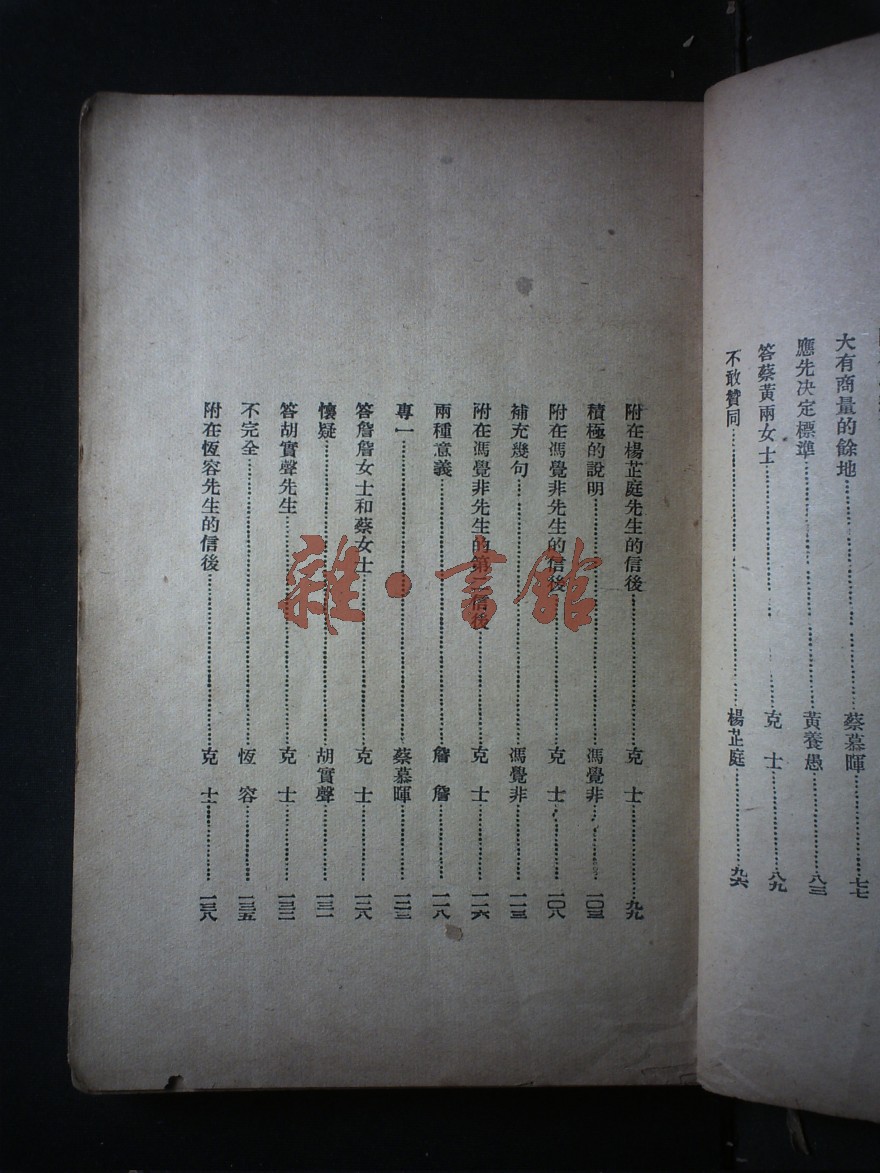 大有商量的餘地 蔡慕暉 七七
應先决定標準 黃養愚 八三
答蔡黃兩女士 克士 八九
不敢贊同 楊芷庭 九六
附在楊芷庭先生的信後 克士 九九
積極的說明 馮覺非 一〇三
附在馮覺非先生的信後 克士 一〇八
補充幾句 馮覺非 一一三
附在馮覺非先生的第二信後 克士 一一六
兩種意義 詹詹 一一八
專一 蔡慕暉 一二三
答詹詹女士和蔡女士 克士 一二八
懷疑 胡實聲 一三一
答胡實聲先生 克士 一三二
不完全 恆容 一三五
附在恆容先生的信後 克士 一三八
雜·書館